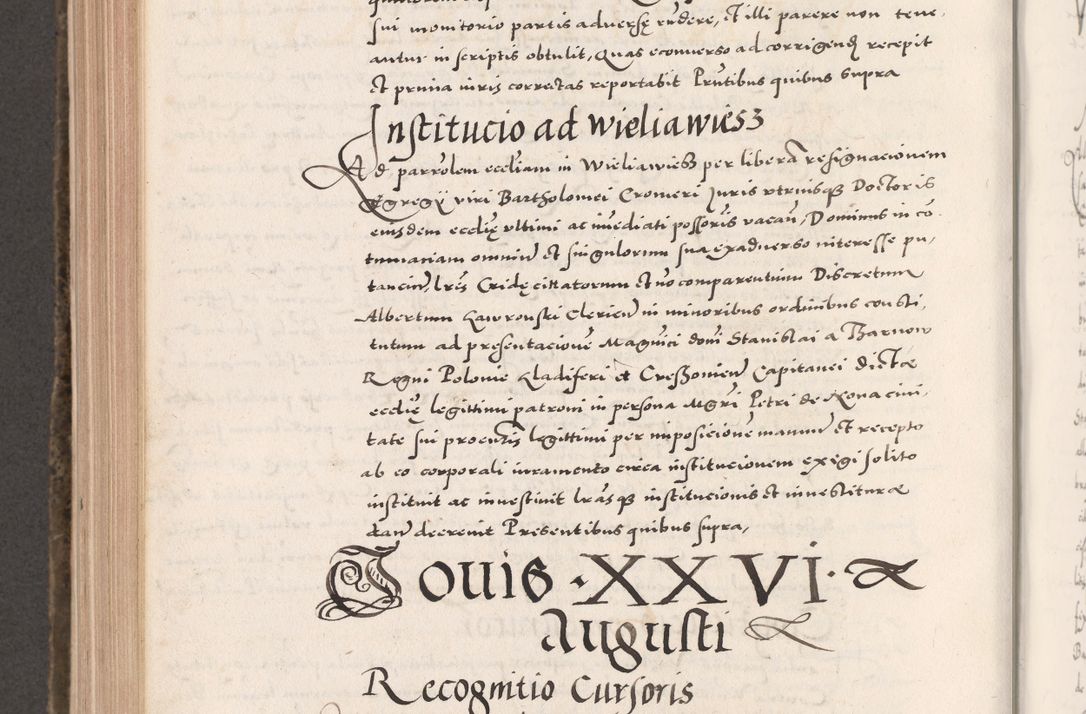 sui monitorio partis adverse reddere, Et illi parere non tene,
antur in scriptis obtulit, Quas econverso ad corrigend recepit
Et pruna iuris correctas reportabit Prntibus quibus supra
Institucio ad wieliawiesz
Ad parrolem eccliam in Wieliawiess per liberā resignacionem
Egregÿ viri Bartholomei Cromeri Juris vtriusqz Doctoris
eiusdem ecclię vltimi ac imediati possoris vacan, Dominus in cō
tumaciam omniū et singulorum sua exadverso interesse pu,
tanciū, lrēs Cridę cittatorum et nō comparentium Discretum
Albertum Lawrowski Clericū in minoribus ordinibus consti,
tutum ad presentacionē Magnici domi Stanislai a Tarnow
Regni Polonie gladiferi et Cressonien Capitanei dictæ
ecclię legittimi patroni in persona Mgri Petri de Xona civi,
tate sui procuris legittimi per imposicionē manuū et recepto
ab eo corporali iuramento circa institucionem exigi solito
instituit ac investivit lrāsqz institucionis et investituræ
dan decrevit Presentibus quibus supra,
Jouis · XXVI ·
Augusti
Recognitio Cursoris